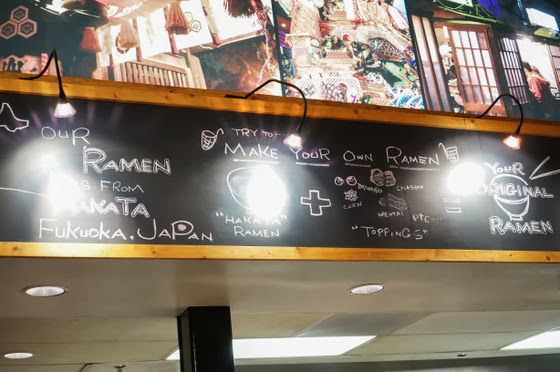 OUR
RAMEN
FROM
HAKATA
FUKUOKA, JAPAN
TRY TO
MAKE YOUR OWN RAMEN
"HAKATA"
RAMEN
+
CHASHU
CORN
MENTAI
etc...
"TOPPINGS"
=
YOUR
ORIGINAL
RAMEN